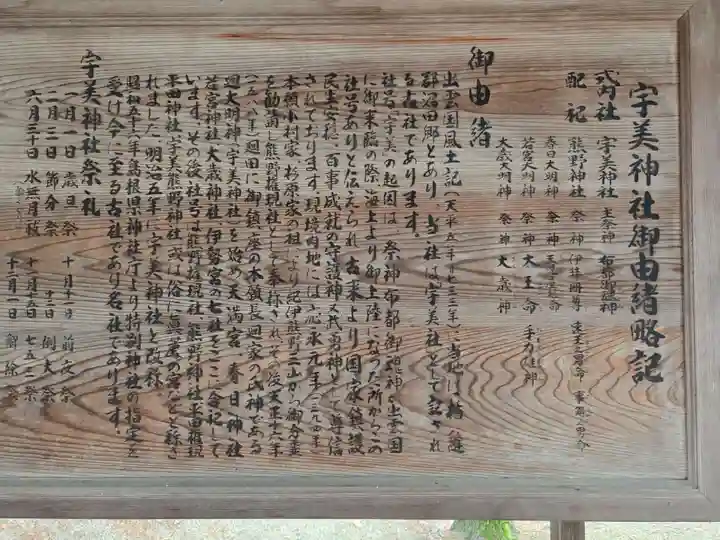 宇美神社御由緒略記
式内社 宇美神社 主祭神 布都御魂神
配記 熊野神社 祭神 伊弉冊尊 速玉之男命 事解之男命
春日大明神 祭神 天児屋根命
若宮大明神 祭神 大玉命
大歳大明神 祭神 大歳神
御由緒
出雲国風土記(天平五年七三三年)当地は楯縫
郡沼田郷とあり、当社は宇美社として記され
る古社であります。
社号「宇美」の起因は、祭神布都御魂神が出雲国
に御来臨の際、海上より御上陸になった所からこの
社号ありと伝えられ、古来より国家鎮護
民生安穏、百事成就の守護神、武勇神として尊信
されております。現境内地には応永元年(一三九四年)
本領小村家、杉原家の祖により紀伊熊野三山から御分霊
を勧請し熊野権現社として奉称されて、後天正十六年
(一五八八年)廻田に御鎮座の本領長廻家の氏神である
廻大明神「宇美神社」を始め天満宮、春日神社
若宮神社、大歳神社、伊勢宮の七社をここに合記して
います。その後社号は熊野権現社、熊野神社、平田権現
平田神社、宇美熊野神社、或は俗に
れました。明治五年に宇美神社と改称、
昭和五十一年島根県神社庁より特別神社の指定を
受け今に至る古社であり名社であります。
宇美神社祭礼
一月一日 歳旦祭 十月十一日 前夜祭
二月三日 節分祭 十二日 例大祭
六月三十日 水無月祓 十一月十五日 七五三祭
十二月一日